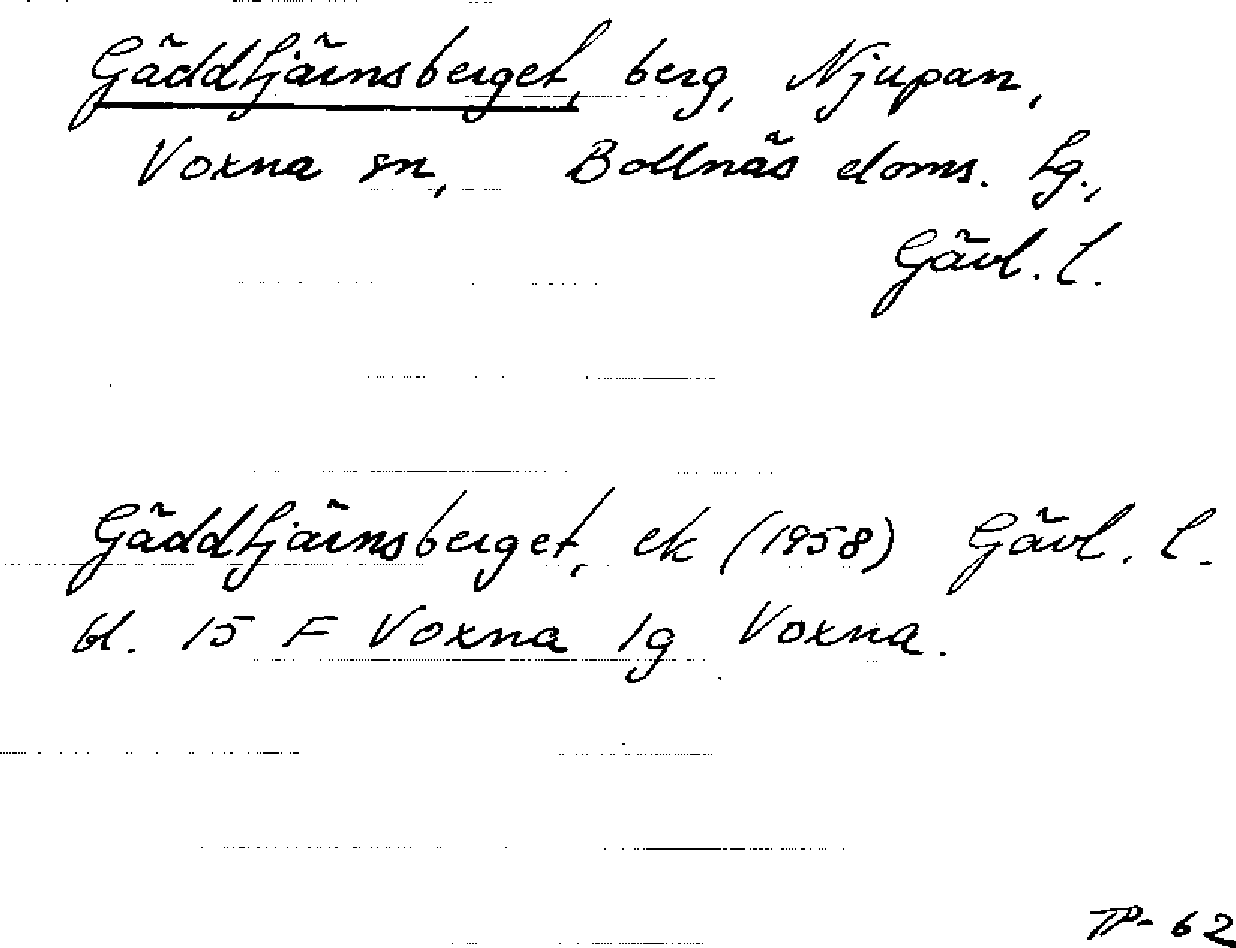 Gäddtjärnsberget, berg, Njupan,
Voxna sn, Bollnäs doms. tg.,
Gävl. l.
Gäddtjärnsberget, ek (1958) Gävl. l.
bl. 15 F Voxna 1g Voxna.
TP- 62